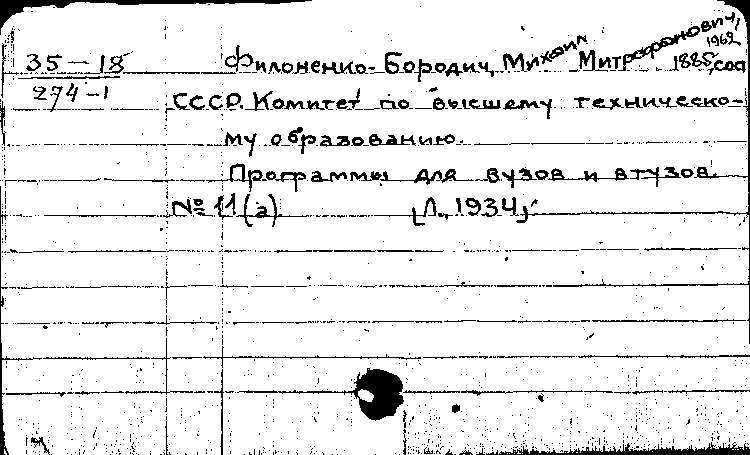 35-18
274-1
Филоненко-Бородич, Михаил Митрофанович, 1885-1962, соа
СССР. Комитет по высшему техническо-
му образованию.
Программы для вузов и втузов.
№ 11(а). [Л., 1934].